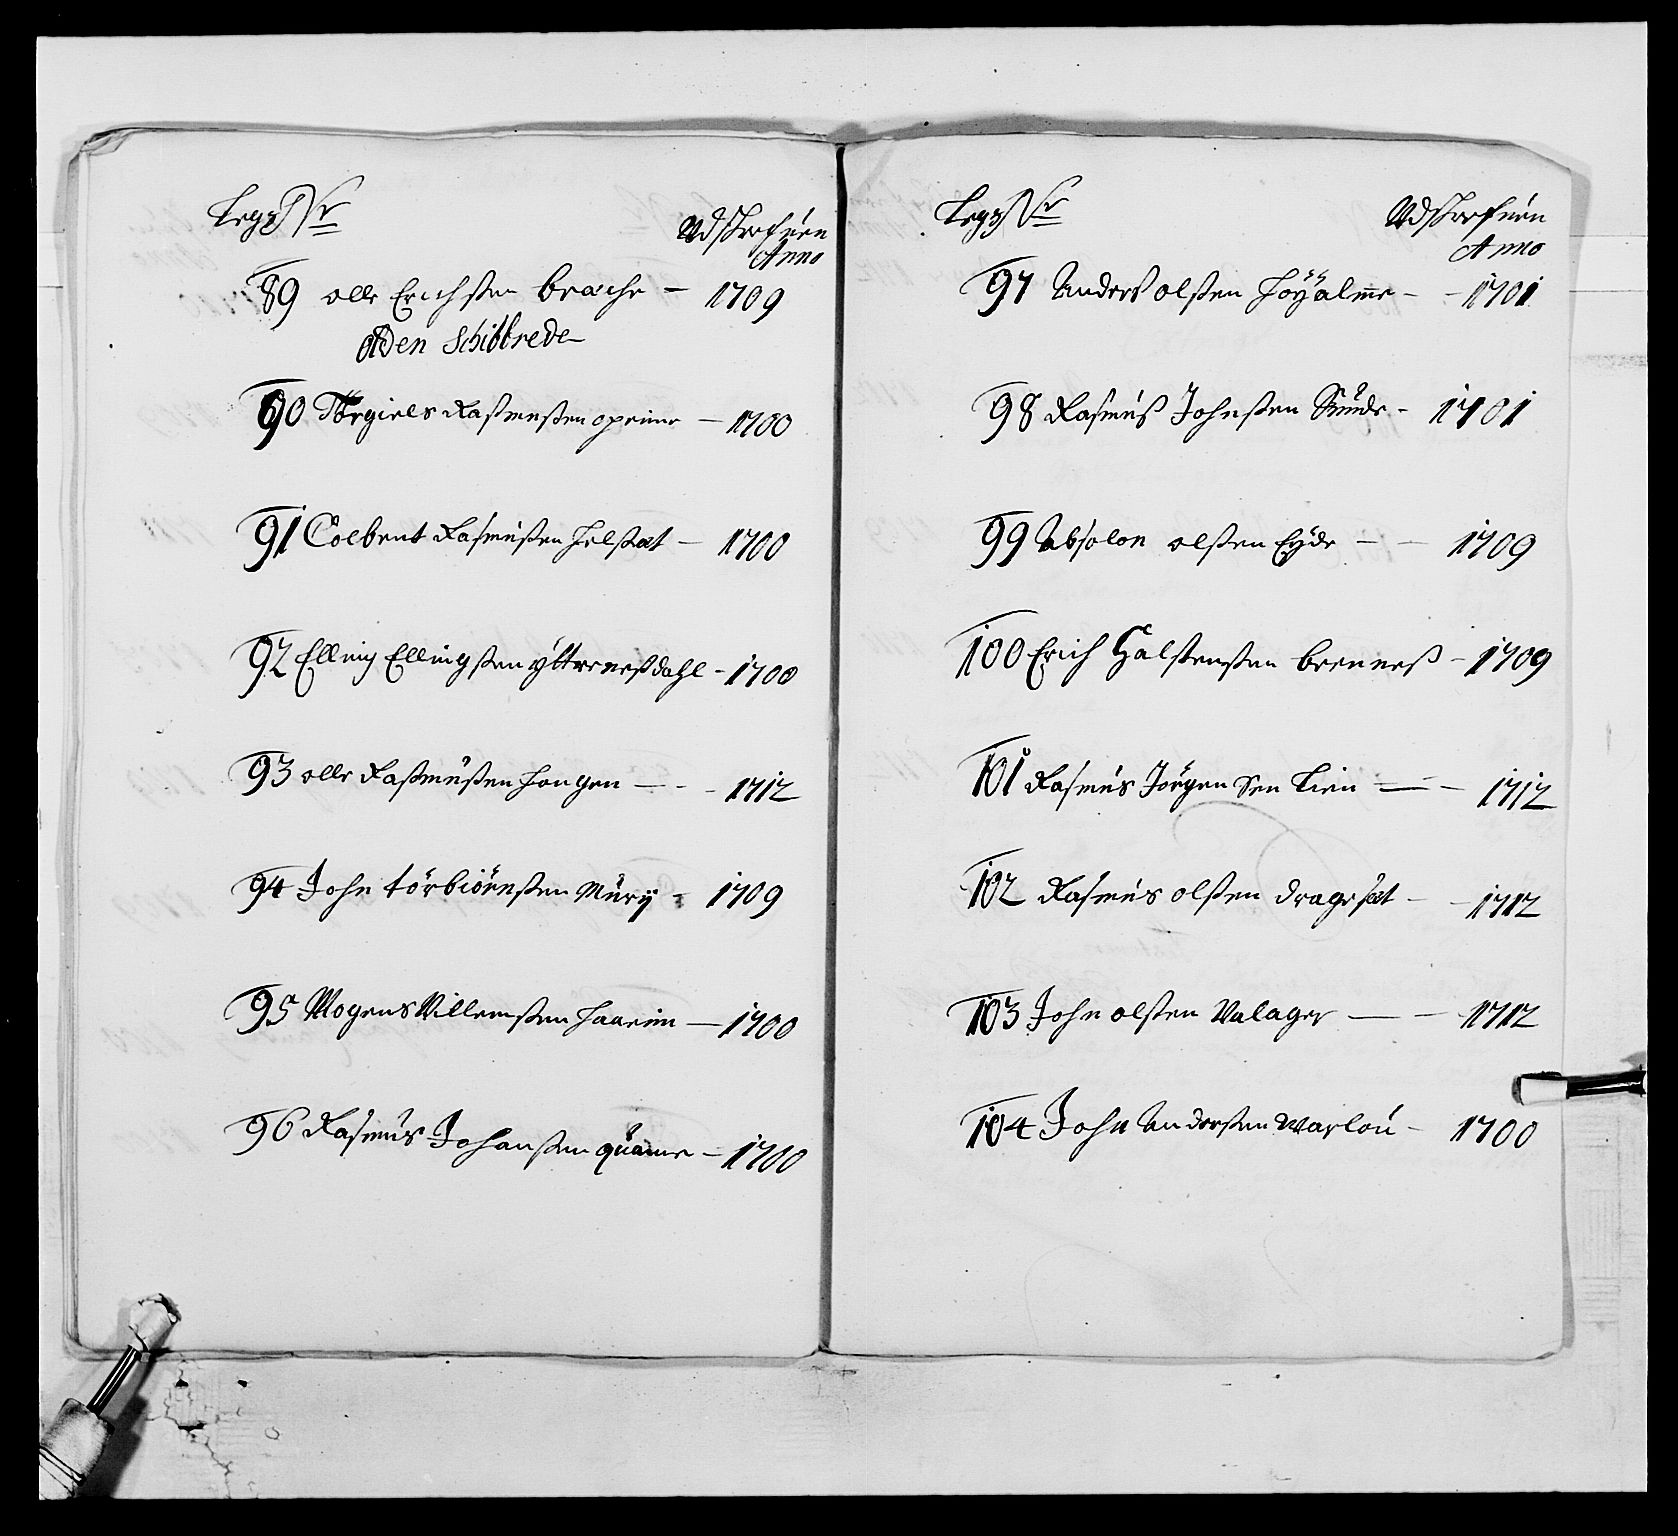 Legz Nr
Udskrefuen
Anno
89 olle Erichsten bræche — 1709
Aden Schibbrede
90 Törgiels Rasmusten opeime — 1700
91 Colbent Rasmusten Helstat — 1700
92 Elling Ellingsten ÿtterenesdahl - 1700
93 olle Rasmusten Hougen — - - 1712
94 John törbiörnsten Mürÿ - 1709
95 Mogens Villemsten Haaeim — 1700
96 Rasmus Johansten quame — 1700
Legz Nr
Udskrefuen
Anno
97 Anders olsten Höÿalme - - 1701
98 Rasmus Johnsten Sunde - 1701
99 Absolon olsten Eÿde — — 1709
100 Erich Halstensten breness - 1709
101 Rasmus Jörgen Sen Lien — - 1712
102 Rasmus olsten dragesæt - - 1712
103 John olsten Valager — - 1712
104 John Andersten Warlou - 1700